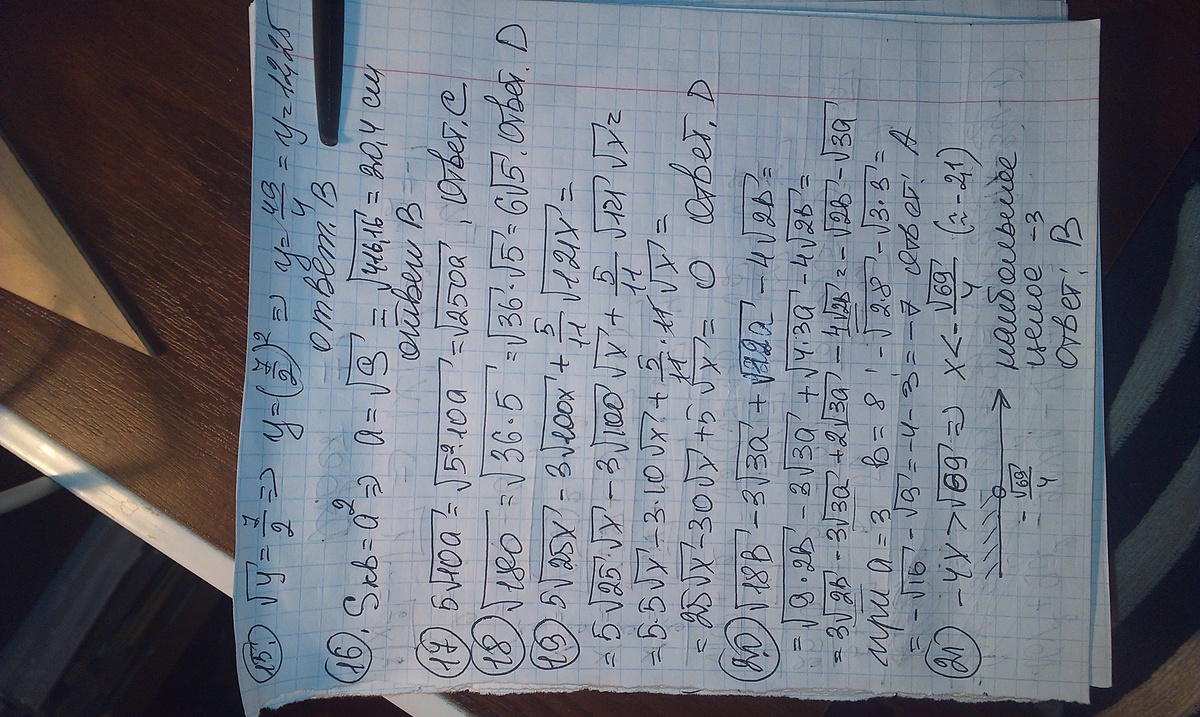 15. √y = 7/2 => y = (7/2)² => y = 49/4 = y = 12,25
ответ. B
16. Sкв = a² => a = √S = √416,16 = 20,4 см
ответ B
17 5√10a = √5²·10a = √250a, ответ. C
18 √180 = √36·5 = √36·√5 = 6√5. ответ. D
19 5√25x - 3√100x + 5/11 √121x =
= 5√25·√x - 3√100 √x + 5/11 √121 √x =
= 5·5√x - 3·10√x + 5/11·11√x =
= 25√x - 30√x + 5√x = 0 ответ. D
20 √18в - 3√3a + √12a - 4√2в =
= √9·2в - 3√3a + √4·3a - 4√2в =
= 3√2в - 3√3a + 2√3a - 4√2в = -√2в - √3a
при a = 3 в = 8, -√2·8 - √3·3 =
= -√16 - √9 = -4 - 3 = -7 ответ: A
21 -4x > √69 => x < -√69/4 (≈ -2,1)
-√69/4
наибольшее
целое -3
ответ: B